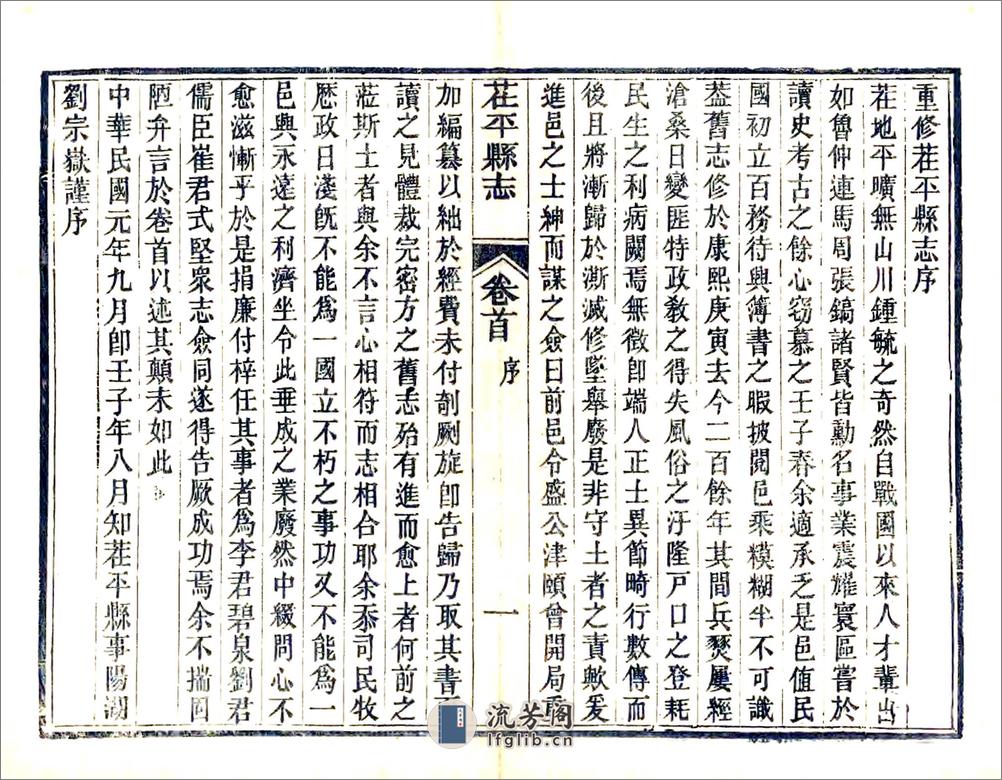 重修茌平縣志序
茌地平曠無山川鍾毓之奇然自戰國以來人才輩出
如魯仲連馬周張鎬諸賢皆勳名事業震耀寰區嘗於
讀史考古之餘心窃慕之壬子春余適承乏是邑值民
國初立百務待興簿書之暇披閱邑乘糢糊半不可識
蓋舊志修於康熙庚寅去今二百餘年其間兵燹屢經
滄桑日變匪特政敎之得失風俗之汙隆戸口之登耗
民生之利病闕焉無徵卽端人正士異節畸行數傳而
後且將漸歸於澌滅修墜舉廢是非守土者之責歟爰
進邑之士紳而謀之僉曰前邑令盛公津頤曾開局重
茌平縣志 卷首 序 一
加編纂以絀於經費未付剞劂旋卽告歸乃取其書
讀之見體裁完密方之舊志殆有進而愈上者何前之
蒞斯土者與余不言心相符而志相合耶余忝司民牧
歴政日淺旣不能爲一國立不朽之事功又不能爲一
邑興永遠之利濟坐令此垂成之業廢然中綴問心不
愈滋慚乎於是捐廉付梓任其事者爲李君碧泉劉君
儒臣崔君式堅衆志僉同遂得告厥成功焉余不揣固
陋弁言於卷首以述其顛末如此
中華民國元年九月卽壬子年八月知茌平縣事陽湖
劉宗嶽謹序
流芳阁
lfglib.cn